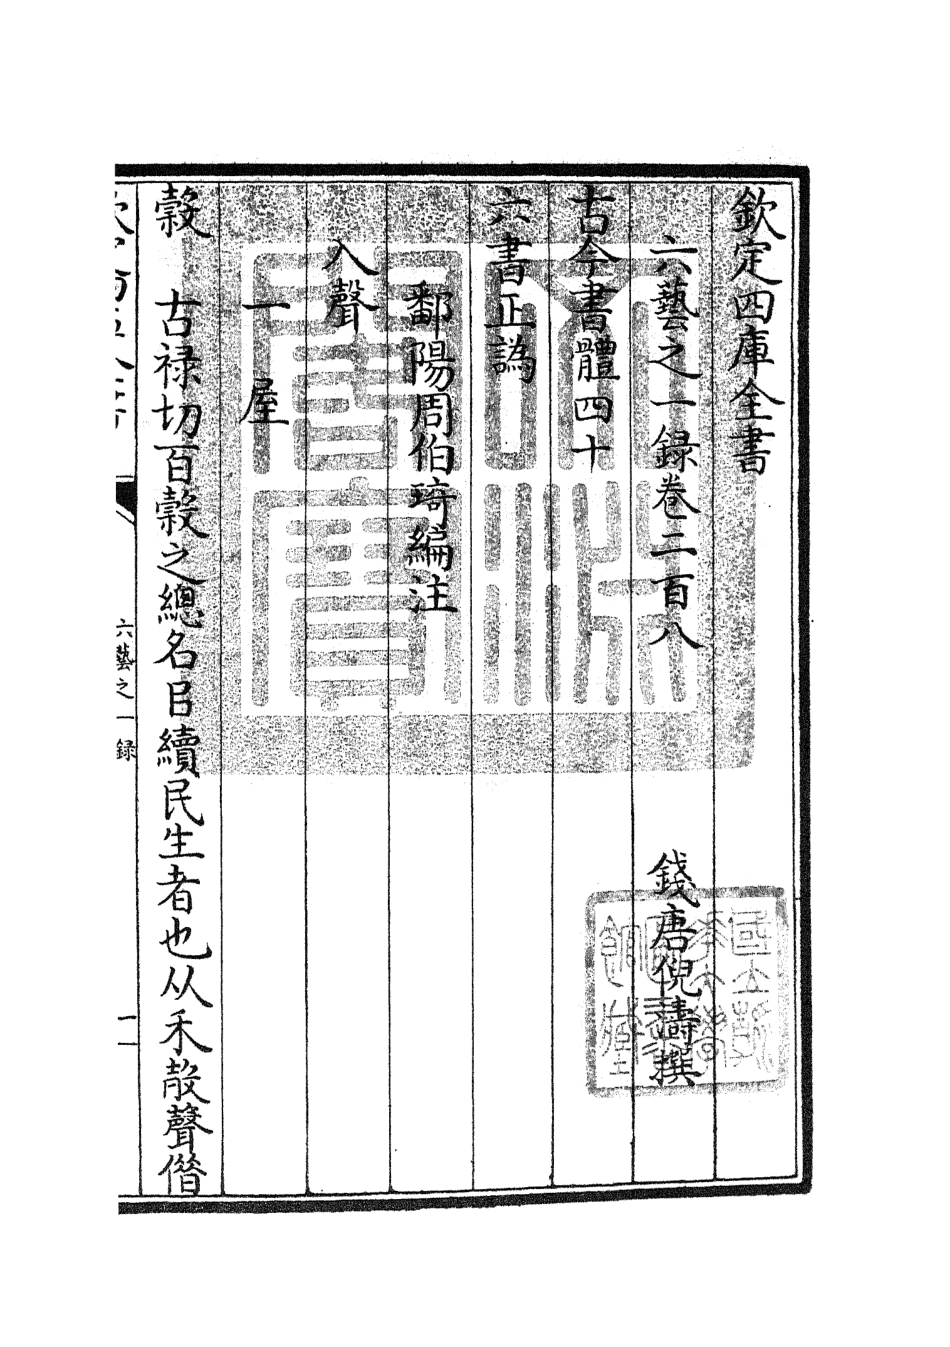 欽定四庫全書
六藝之一録卷二百八
錢唐倪濤撰
古今書體四十
六書正譌
鄱陽周伯琦編注
入聲
一屋
穀 古祿切百穀之總名㠯續民生者也从禾㱿聲偕
六藝之一録
一